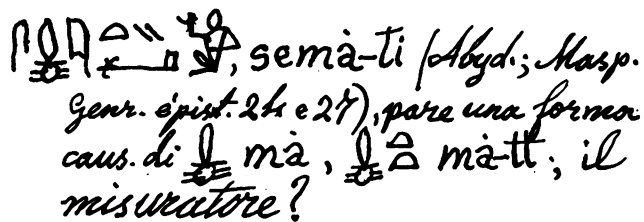 , semȧ-ti (Abyd.; Masp.
Genr. épist. 24 e 27), pare una forma
caus. di mȧ, mȧ-tt; il
misuratore?